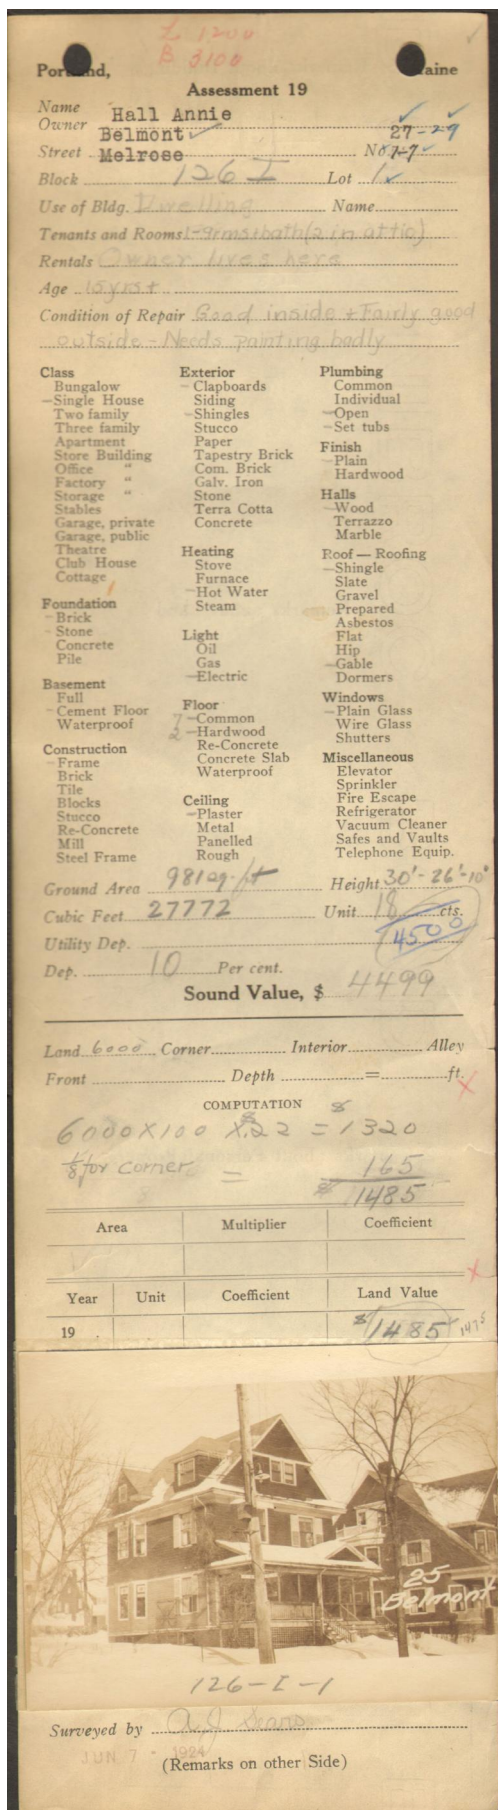 L 1200
B 3100
Portland, Maine
Assessment 19
Name
Owner Hall Annie
Belmont 27-29
Street Melrose No. 7-7
Block 126 I Lot 1
Use of Bldg. Dwelling Name
Tenants and Rooms 1-9rms+bath(2 in attic)
Rentals Owner lives here
Age 15yrs +
Condition of Repair Good inside + Fairly good
outside - Needs painting badly
Class
Bungalow
Single House
Two family
Three family
Apartment
Store Building
Office "
Factory "
Storage "
Stables
Garage, private
Garage, public
Theatre
Club House
Cottage
Foundation
Brick
Stone
Concrete
Pile
Basement
Full
Cement Floor
Waterproof
Construction
Frame
Brick
Tile
Blocks
Stucco
Re-Concrete
Mill
Steel Frame
Exterior
Clapboards
Siding
Shingles
Stucco
Paper
Tapestry Brick
Com. Brick
Galv. Iron
Stone
Terra Cotta
Concrete
Heating
Stove
Furnace
Hot Water
Steam
Light
Oil
Gas
Electric
Floor
7 Common
2 Hardwood
Re-Concrete
Concrete Slab
Waterproof
Ceiling
Plaster
Metal
Panelled
Rough
Plumbing
Common
Individual
Open
Set tubs
Finish
Plain
Hardwood
Halls
Wood
Terrazzo
Marble
Roof — Roofing
Shingle
Slate
Gravel
Prepared
Asbestos
Flat
Hip
Gable
Dormers
Windows
Plain Glass
Wire Glass
Shutters
Miscellaneous
Elevator
Sprinkler
Fire Escape
Refrigerator
Vacuum Cleaner
Safes and Vaults
Telephone Equip.
Ground Area 981 sq. ft Height 30'-26'-10"
Cubic Feet 27772 Unit 18 cts.
Utility Dep. 4500
Dep. 10 Per cent.
Sound Value, $ 4499
Land 6000 Corner Interior Alley
Front Depth = ft.
COMPUTATION
6000 X 100 X $.22 = $1320
1/8 for corner = 165
$1485
Area Multiplier Coefficient
Year Unit Coefficient Land Value
19 $1485 1475
25
Belmont
126-I-1
Surveyed by A.J. Sears
JUN 7 - 1924
(Remarks on other Side)